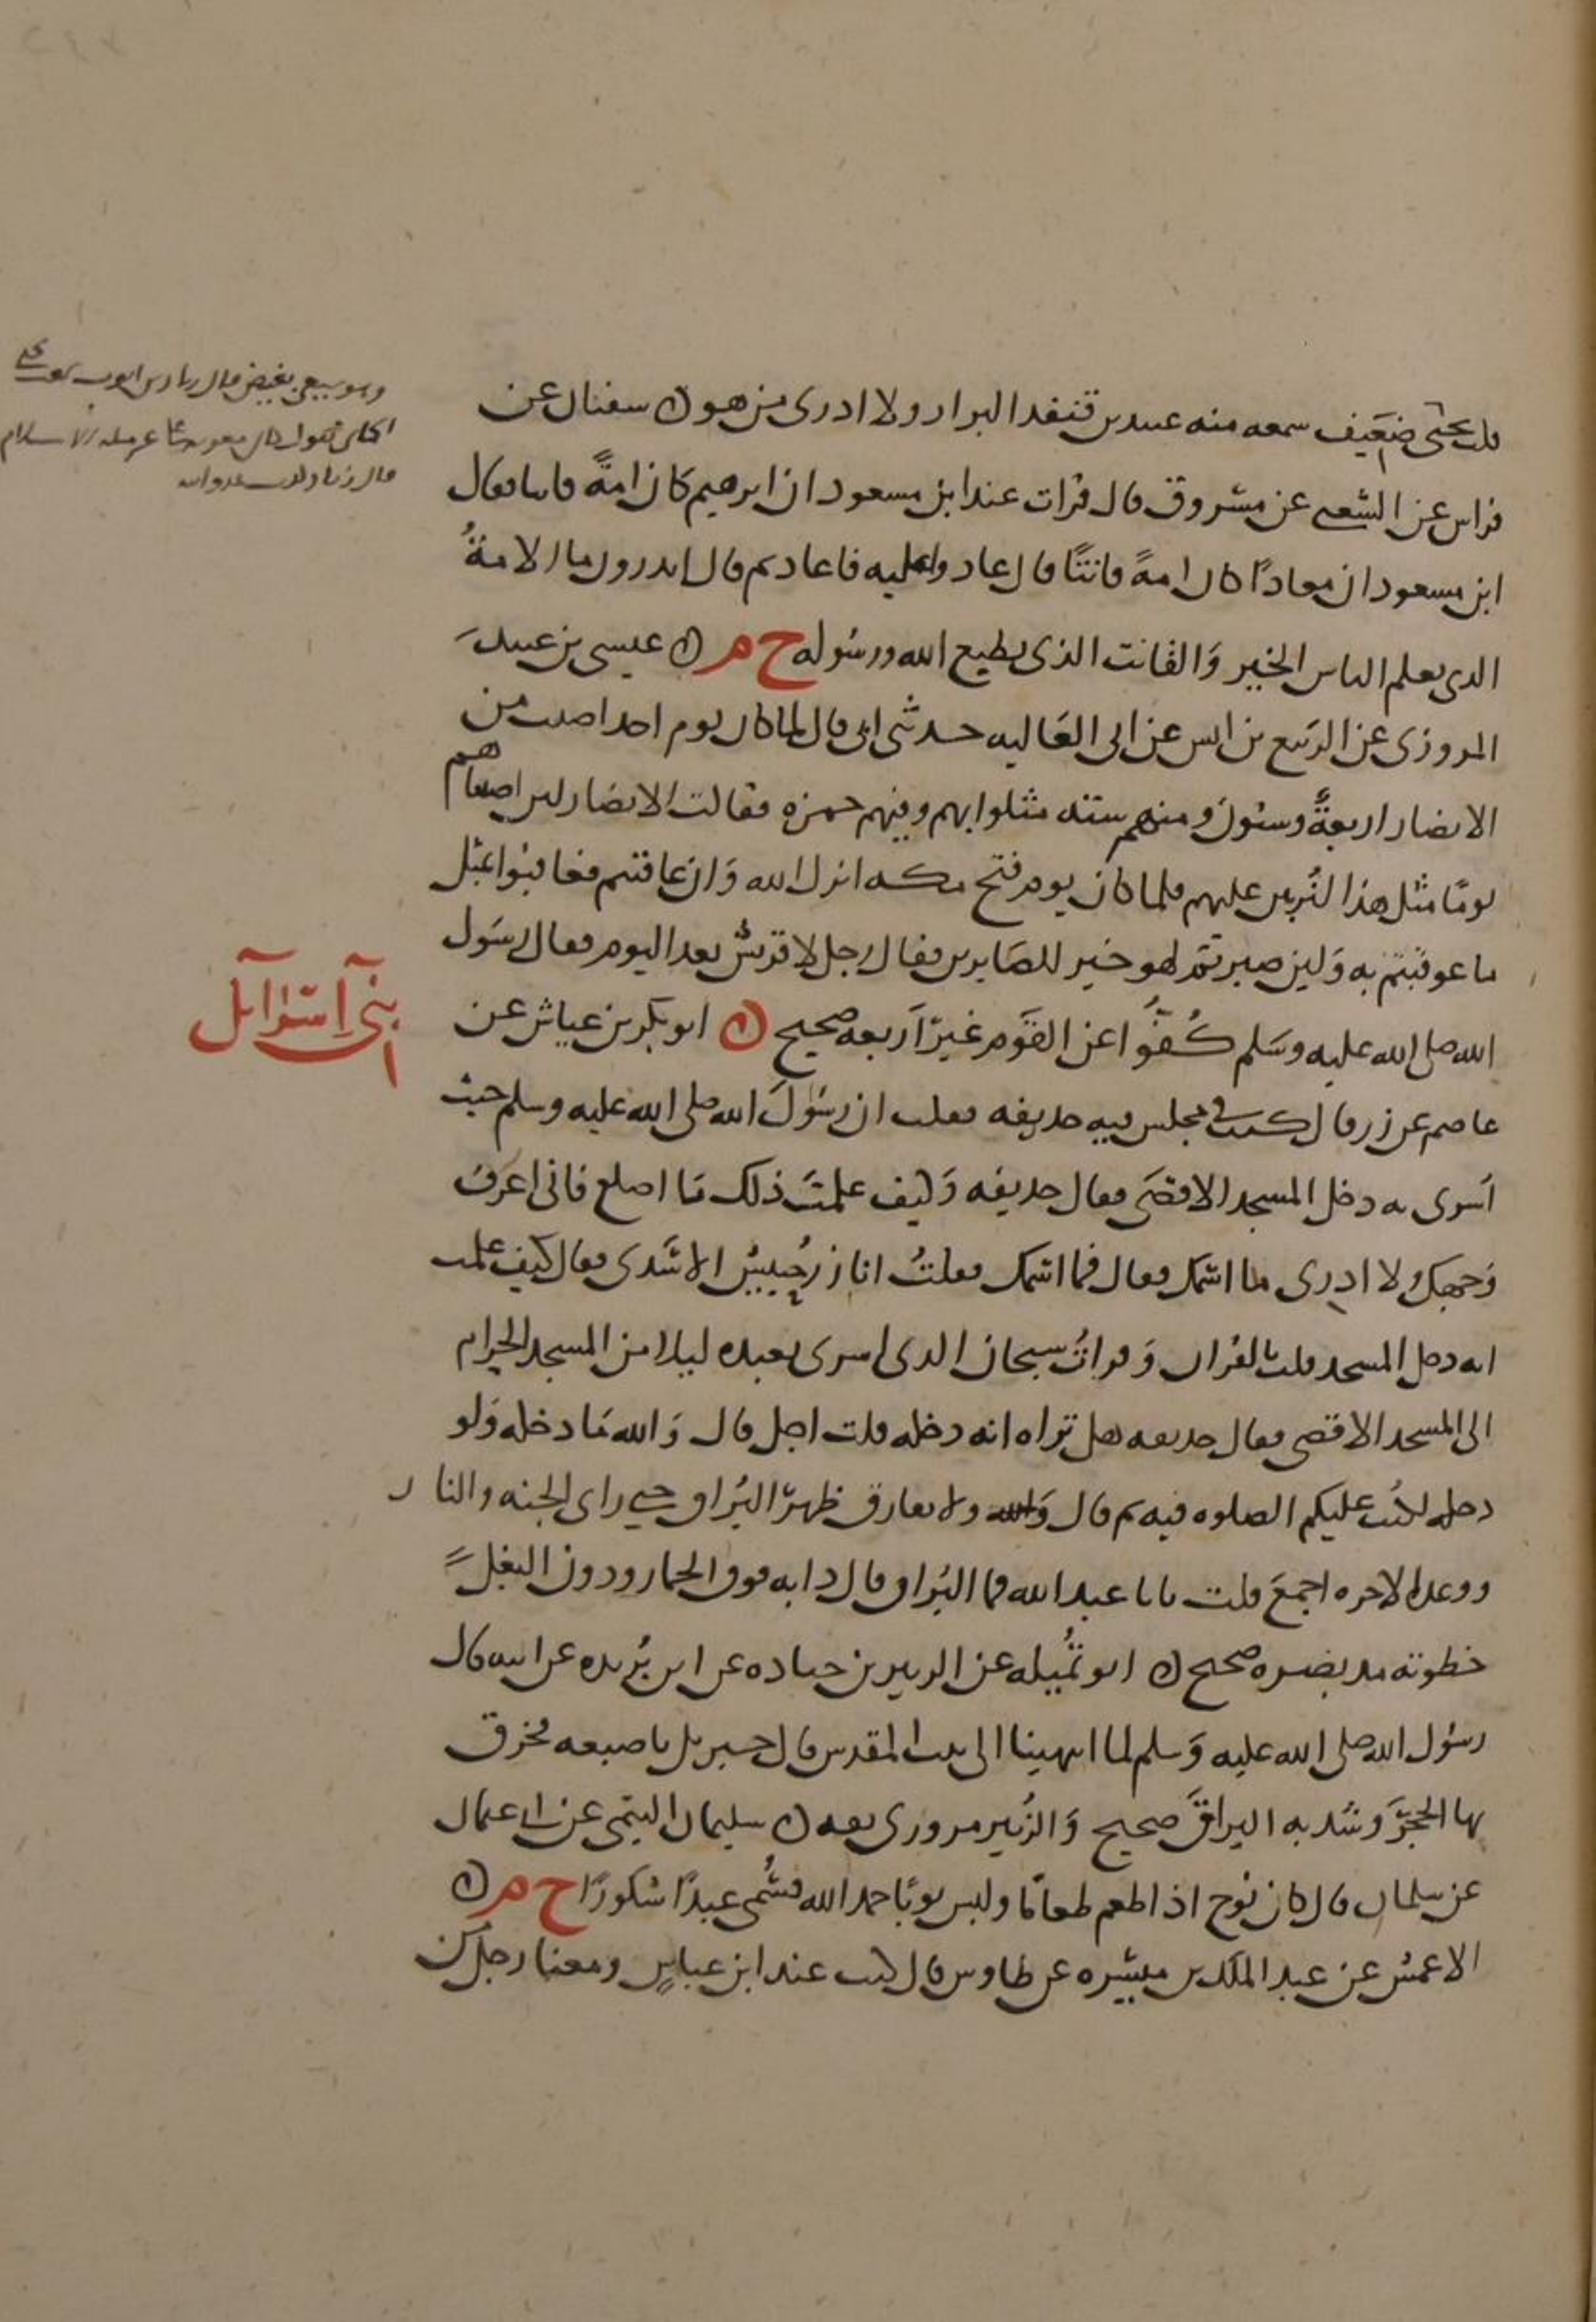 قلت يحيى ضعيف سمعه منه عبيد بن قنفد البزار ولا ادرى من هو ن سفيان عن
فراس عن الشعبي عن مسروق قال قرات عند ابن مسعود ان ابرهيم كان امةً قانتا فقال
ابن مسعود ان معاذًا كان امةً قانتًا قال عادوا عليه فاعاد ثم قال اتدرون ما الامةُ
الذي يعلم الناس الخير وَالقانت الذى يطيع الله ورسوله خ م ن عيسى بن عبيد
المروزى عن الربيع بن انس عن ابى العَاليه حدثنى ابى قال لما كان يوم احد اصيب من
الانصار اربعةٌ وستون ومنهم ستة مثلوا بهم وفيهم حمزه فقالت الانصار لين اصبناهم
يومًا مثل هذا لنُربين عليهم فلما كان يوم فتح مكه انزل الله وَان عاقبتم فعاقبوا بمثل
ما عوقبتم به وَلين صبرتم لهو خير للصَابرين فقال رجل لا قريش بعد اليوم فقال رسَول
الله صلى الله عليه وسَلم كُفُّوا عن القَوم غيرَ اَربعه صحيح ن ابو بكر بن عياش عن
بنى اسرائيل
عاصم عن زر قال كنت فى مجلس فيه حذيفه فقلت ان رسُولَ الله صلى الله عليه وسلم حيث
اَسرى به دخل المسجد الاقصَى فقال حذيفه وَكيف علمتَ ذلك يَا اصلع فانى اعرف
وَجهك ولا ادرى ما اسمك فقال فما اسمك فقلتُ انا زر بن حُبيش الاسَدى فقال كيف علمت
انه دخل المسجد قلت بالقران وَقراتُ سبحان الذى اسرى بعبده ليلا من المسجد الحرام
الى المسجد الاقصى فقال حذيفه هل تراه انه دخله قلت اجل قال وَالله مَا دخله وَلو
دخله لكتب عليكم الصلوه فيه ثم قال وَالله ولا يفارق ظهر البُراق حتى راى الجنه والنار
ووعد الاخره اجمعَ قلت يابا عبد الله فما البُراق قال دابه فوق الحمار ودون البغل
خطوته مد بصره صحيح ن ابو تُميله عن الزبير بن جناده عن ابن بُريده عن ابيه قال
رسُول الله صلى الله عليه وَسلم لما انتهينا الى بيت المقدس قال جبريل باصبعه فخرق
بها الحجرَ وشد به البراقَ صحيح وَالزُبير مروزى ثقه ن سليمان التيمى عن ابى عثمان
عن سلمان قال كان نوح اذا طعم طعامًا ولبس ثوبًا حمد الله فسُمى عبدًا شكورًا خ م ن
الاعمش عن عبد الملك بن ميسره عن طاوس قال كنت عند ابن عباسٍ ومعنا رجل من